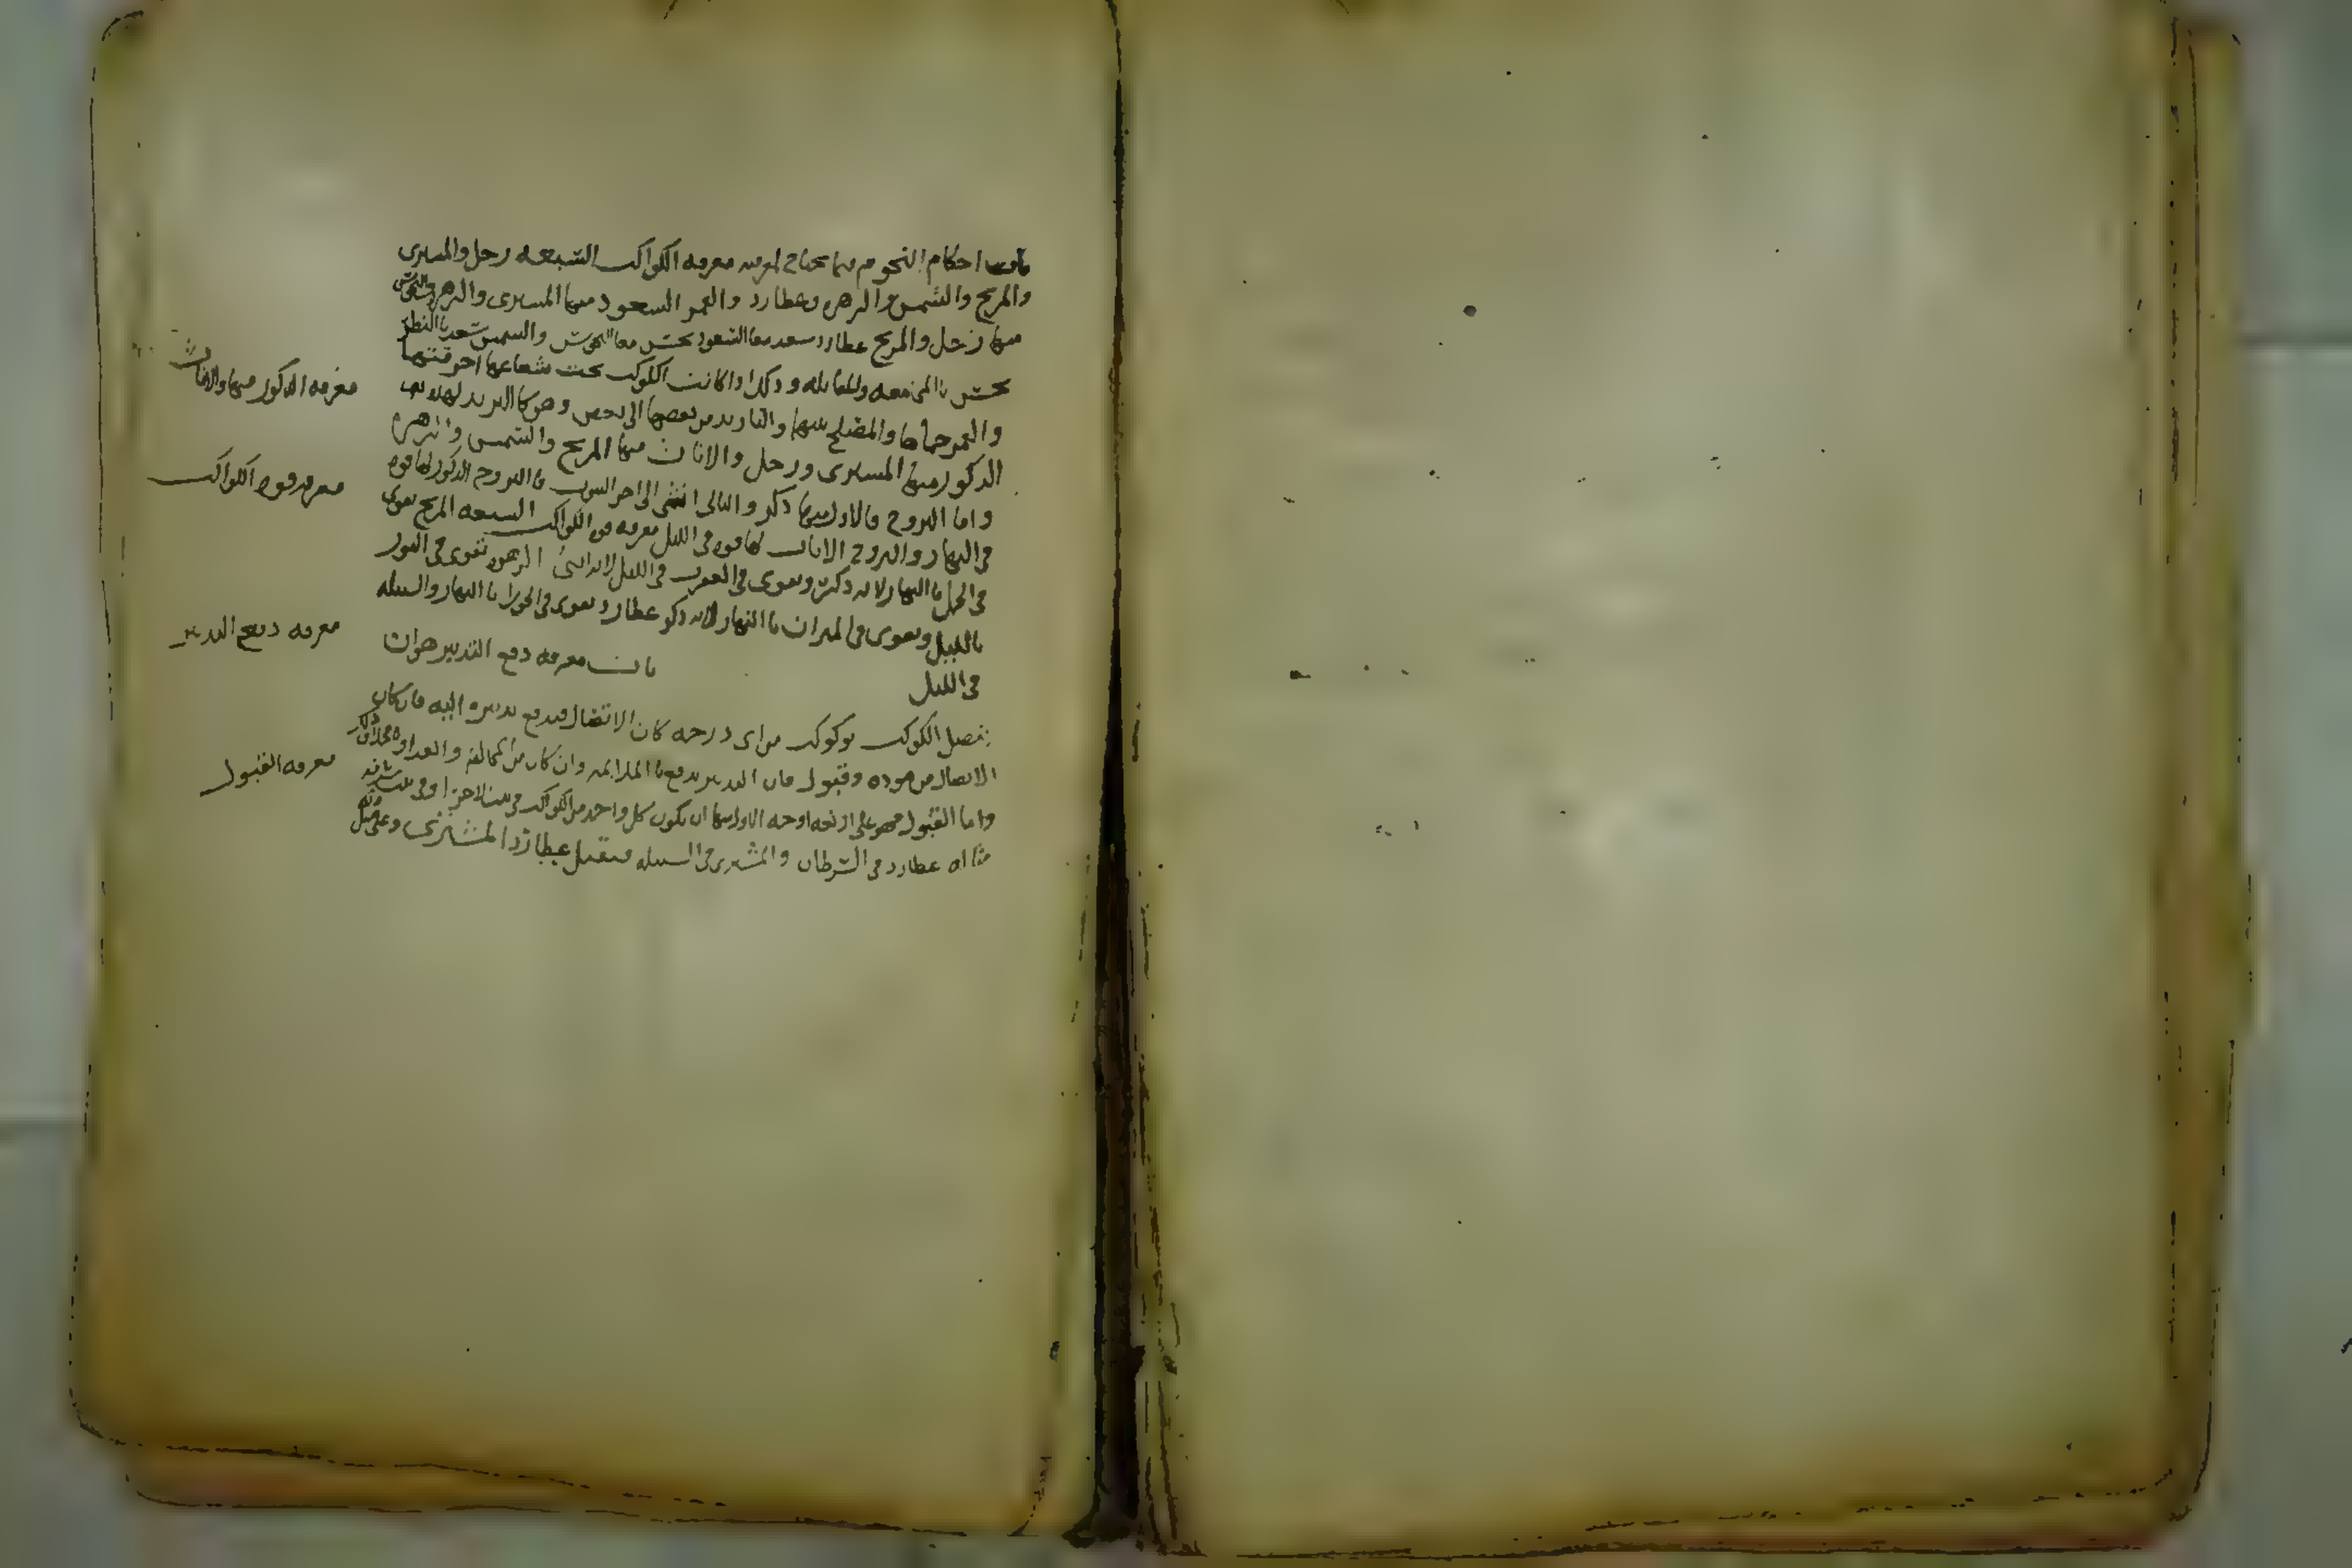 باب احكام النجوم مما يحتاج لمعرفته معرفه الكواكب السبعه زحل والمشترى
والمريخ والشمس والزهره وعطارد والقمر السعود منها المشترى والزهره والنحوس
منها زحل والمريخ عطارد سعد مع السعود نحس مع النحوس والشمس سعد بالنظر
نحس بالمجامعه والمقابله وكذا اذا كانت الكواكب تحت شعاعها احرقتها
والقمر والمصلح بينها من بعضها الى بعض وهو كالبريد
معرفه الذكور منها والاناث
الذكور منها المشترى وزحل والاناث منها المريخ والشمس والزهره
واما البروج فالاول منها ذكر والثانى انثى الى اخر البروج فالبروج الذكور لها قوه
فى النهار والبروج الاناث لها قوه فى الليل معرفه قوه الكواكب السبعه المريخ يقوى
معرفه قوه الكواكب
فى الحمل بالنهار لانه ذكر ويقوى فى العقرب فى الليل لانه انثى الزهره تقوى فى الثور
بالليل ويقوى فى الميزان بالنهار لانه ذكر عطارد يقوى فى الجوزا بالنهار والسنبله
فى الليل باب معرفه دفع التدبير هو ان
معرفه دفع التدبير
يتصل الكوكب بكوكب من اى درجه كان الاتصال فيدفع تدبيره اليه فان كان
الاتصال من موده وقبول فان التدبير يدفع بالملايمه وان كان من مخالفه والعداوه بخلاف ذلك
معرفه القبول
واما القبول فهو على اربعه اوجه الاول منها ان يكون كل واحد من الكواكب فى بيت الاخر او فى بيت شرفه
مثاله عطارد فى السرطان والمشترى فى السنبله فيقبل عطارد المشترى وعلى مثل